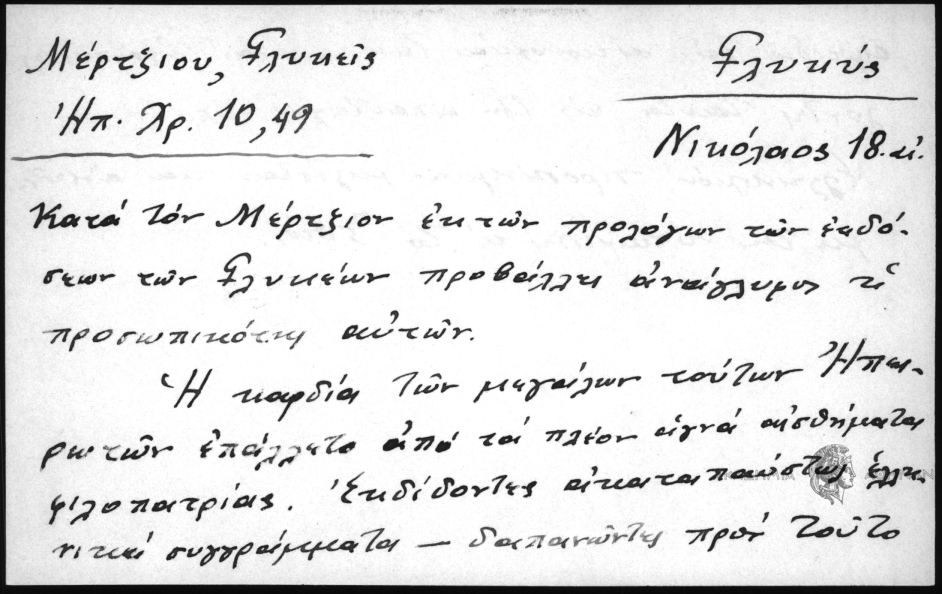 Μέρτζιου, Γλυκεῖς
Γλυκύς
Ἠπ. Χρ. 10, 49
Νικόλαος 18. αἰ.
Κατά τόν Μέρτζιον ἐκ τῶν προλόγων τῶν ἐκδό-
σεων τῶν Γλυκέων προβάλλει ἀνάγλυφος ἡ
προσωπικότης αὐτῶν.
Ἡ καρδία τῶν μεγάλων τούτων Ἠπει-
ρωτῶν ἐπάλλετο ἀπό τά πλέον ἁγνά αἰσθήματα
φιλοπατρίας. Ἐκδίδοντες ἀκαταπαύστως ἑλλη-
νικά συγγράμματα — δαπανῶντες πρός τοῦτο